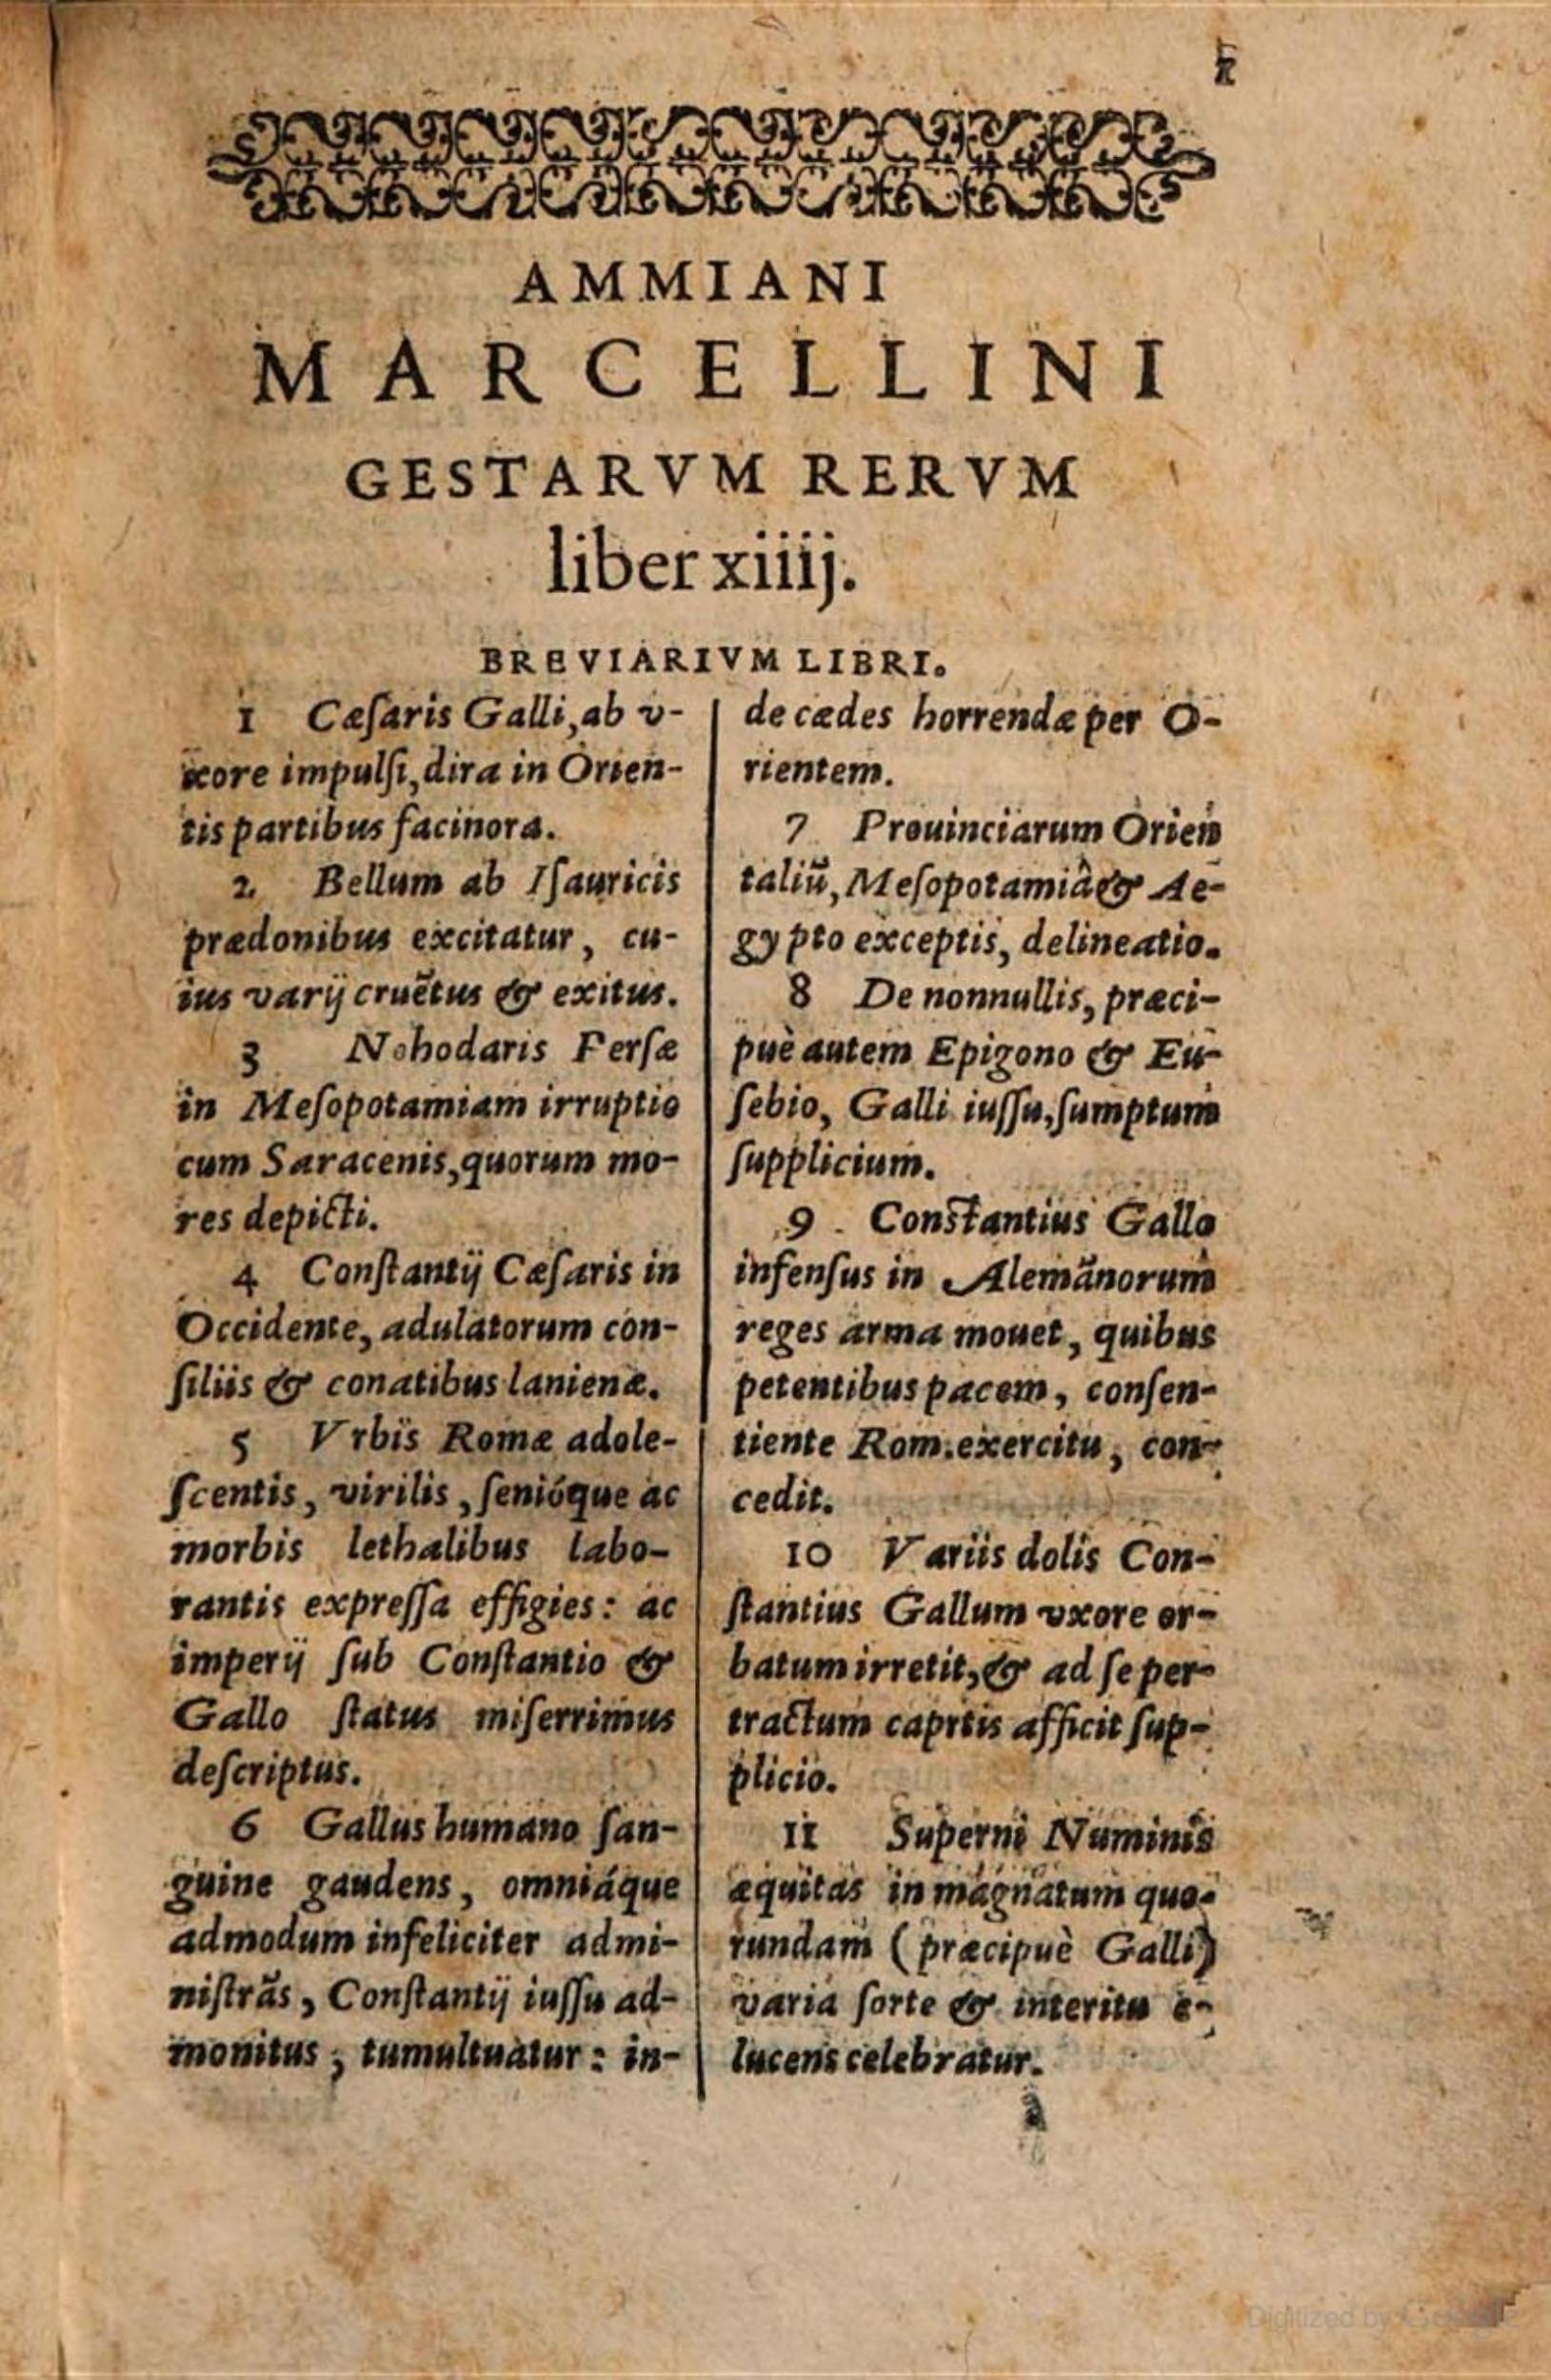 AMMIANI
MARCELLINI
GESTARVM RERVM
liber xiiij.
BREVIARIVM LIBRI.
1 Cæſaris Galli, ab v-
xore impulſi, dira in Orien-
tis partibus facinora.
2 Bellum ab Iſauricis
prædonibus excitatur, cu-
ius varij cruẽtus & exitus.
3 Nohodaris Perſæ
in Meſopotamiam irruptio
cum Saracenis, quorum mo-
res depicti.
4 Conſtantij Cæſaris in
Occidente, adulatorum con-
ſiliis & conatibus lanienæ.
5 Vrbis Romæ adole-
ſcentis, virilis, ſenióque ac
morbis lethalibus labo-
rantis expreſſa effigies: ac
imperij ſub Conſtantio &
Gallo ſtatus miſerrimus
deſcriptus.
6 Gallus humano ſan-
guine gaudens, omniáque
admodum infeliciter admi-
niſtrãs, Conſtantij iuſſu ad-
monitus, tumultuatur: in-
de cædes horrendæ per O-
rientem.
7 Prouinciarum Orien
taliũ, Meſopotamiâ & Ae-
gypto exceptis, delineatio.
8 De nonnullis, præci-
puè autem Epigono & Eu-
ſebio, Galli iuſſu, ſumptum
ſupplicium.
9 Conſtantius Gallo
infenſus in Alemãnorum
reges arma mouet, quibus
petentibus pacem, conſen-
tiente Rom. exercitu, con-
cedit.
10 Variis dolis Con-
ſtantius Gallum vxore or-
batum irretit, & ad ſe per-
tractum capitis afficit ſup-
plicio.
11 Superni Numinis
æquitas in magnatum quo-
rundam (præcipuè Galli)
varia ſorte & interitu e-
lucens celebratur.
Digitized by Google